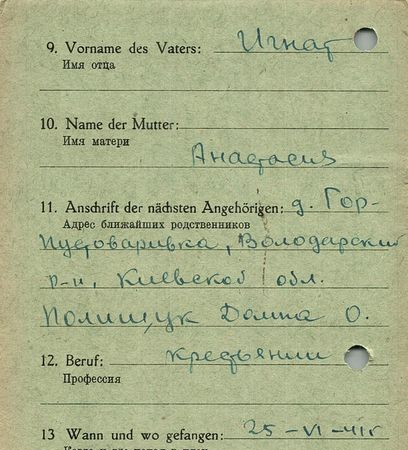 9. Vorname des Vaters: Игнат
Имя отца
10. Name der Mutter:
Имя матери
Анастасия
11. Anschrift der nächsten Angehörigen: д. Гор-
Адрес ближайших родственников
Пустоваривка, Володарский
р-н, Киевской обл.
Полищук Домна О.
12. Beruf: крестьянин
Профессия
13 Wann und wo gefangen: 25-VI-41г